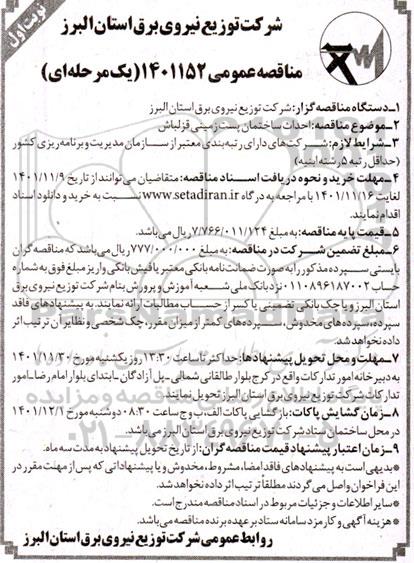 نوبت اول
شرکت توزیع نیروی برق استان البرز
مناقصه عمومی ۱۴۰۱۱۵۲ (یک مرحله‌ای)
۱-دستگاه مناقصه گزار: شرکت توزیع نیروی برق استان البرز
۲-موضوع مناقصه: احداث ساختمان پست زمینی قزلباش
۳-شرایط لازم: شرکت‌های دارای رتبه‌بندی معتبر از سازمان مدیریت و برنامه‌ریزی کشور
(حداقل رتبه ۵ رشته ابنیه)
۴-مهلت خرید و نحوه دریافت اسناد مناقصه: متقاضیان می‌توانند از تاریخ ۱۴۰۱/۱۱/۹
لغایت ۱۴۰۱/۱۱/۱۶ با مراجعه به درگاه www.setadiran.ir نسبت به خرید و دانلود اسناد
اقدام نمایند.
۵-قیمت پایه مناقصه: به مبلغ ۷/۷۶۶/۰۱۱/۱۲۴ ریال می‌باشد.
۶-مبلغ تضمین شرکت در مناقصه: به مبلغ ۷۷۷/۰۰۰/۰۰۰ ریال می‌باشد که مناقصه گران
بایستی سپرده مذکور را به صورت ضمانت نامه بانکی معتبر یا فیش بانکی واریز مبلغ فوق به شماره
حساب ۰۱۱۰۸۹۶۱۸۷۰۰۲ نزد بانک ملی شعبه آموزش و پرورش بنام شرکت توزیع نیروی برق
استان البرز و یا چک بانکی تضمینی یا کسر از حساب مطالبات ارائه نمایند. به پیشنهادهای فاقد
سپرده، سپرده‌های مخدوش، سپرده‌های کمتر از میزان مقرر، چک شخصی و نظایر آن ترتیب اثر
داده نخواهد شد.
۷-مهلت و محل تحویل پیشنهادها: حداکثر تا ساعت ۱۳:۳۰ روز یکشنبه مورخ ۱۴۰۱/۱۱/۳۰
به دبیرخانه امور تدارکات واقع در کرج بلوار طالقانی شمالی-پل آزادگان-ابتدای بلوار امام رضا-امور
تدارکات شرکت توزیع نیروی برق استان البرز تحویل نمایند.
۸-زمان گشایش پاکات: بازگشایی پاکات الف، ب و ج ساعت ۰۸:۳۰ دوشنبه مورخ ۱۴۰۱/۱۲/۱
در محل ساختمان ستاد شرکت توزیع نیروی برق استان البرز می‌باشد.
۹-زمان اعتبار پیشنهاد قیمت مناقصه گران: از تاریخ تحویل پیشنهاد به مدت سه ماه.
*بدیهی است به پیشنهادهای فاقد امضا، مشروط، مخدوش و یا پیشنهاداتی که پس از مهلت مقرر در
این فراخوان واصل می‌گردند مطلقاً ترتیب اثر داده نخواهد شد.
*سایر اطلاعات و جزئیات مربوط در اسناد مناقصه مندرج است.
*هزینه آگهی و کارمزد سامانه ستاد بر عهده برنده مناقصه می‌باشد.
روابط عمومی شرکت توزیع نیروی برق استان البرز